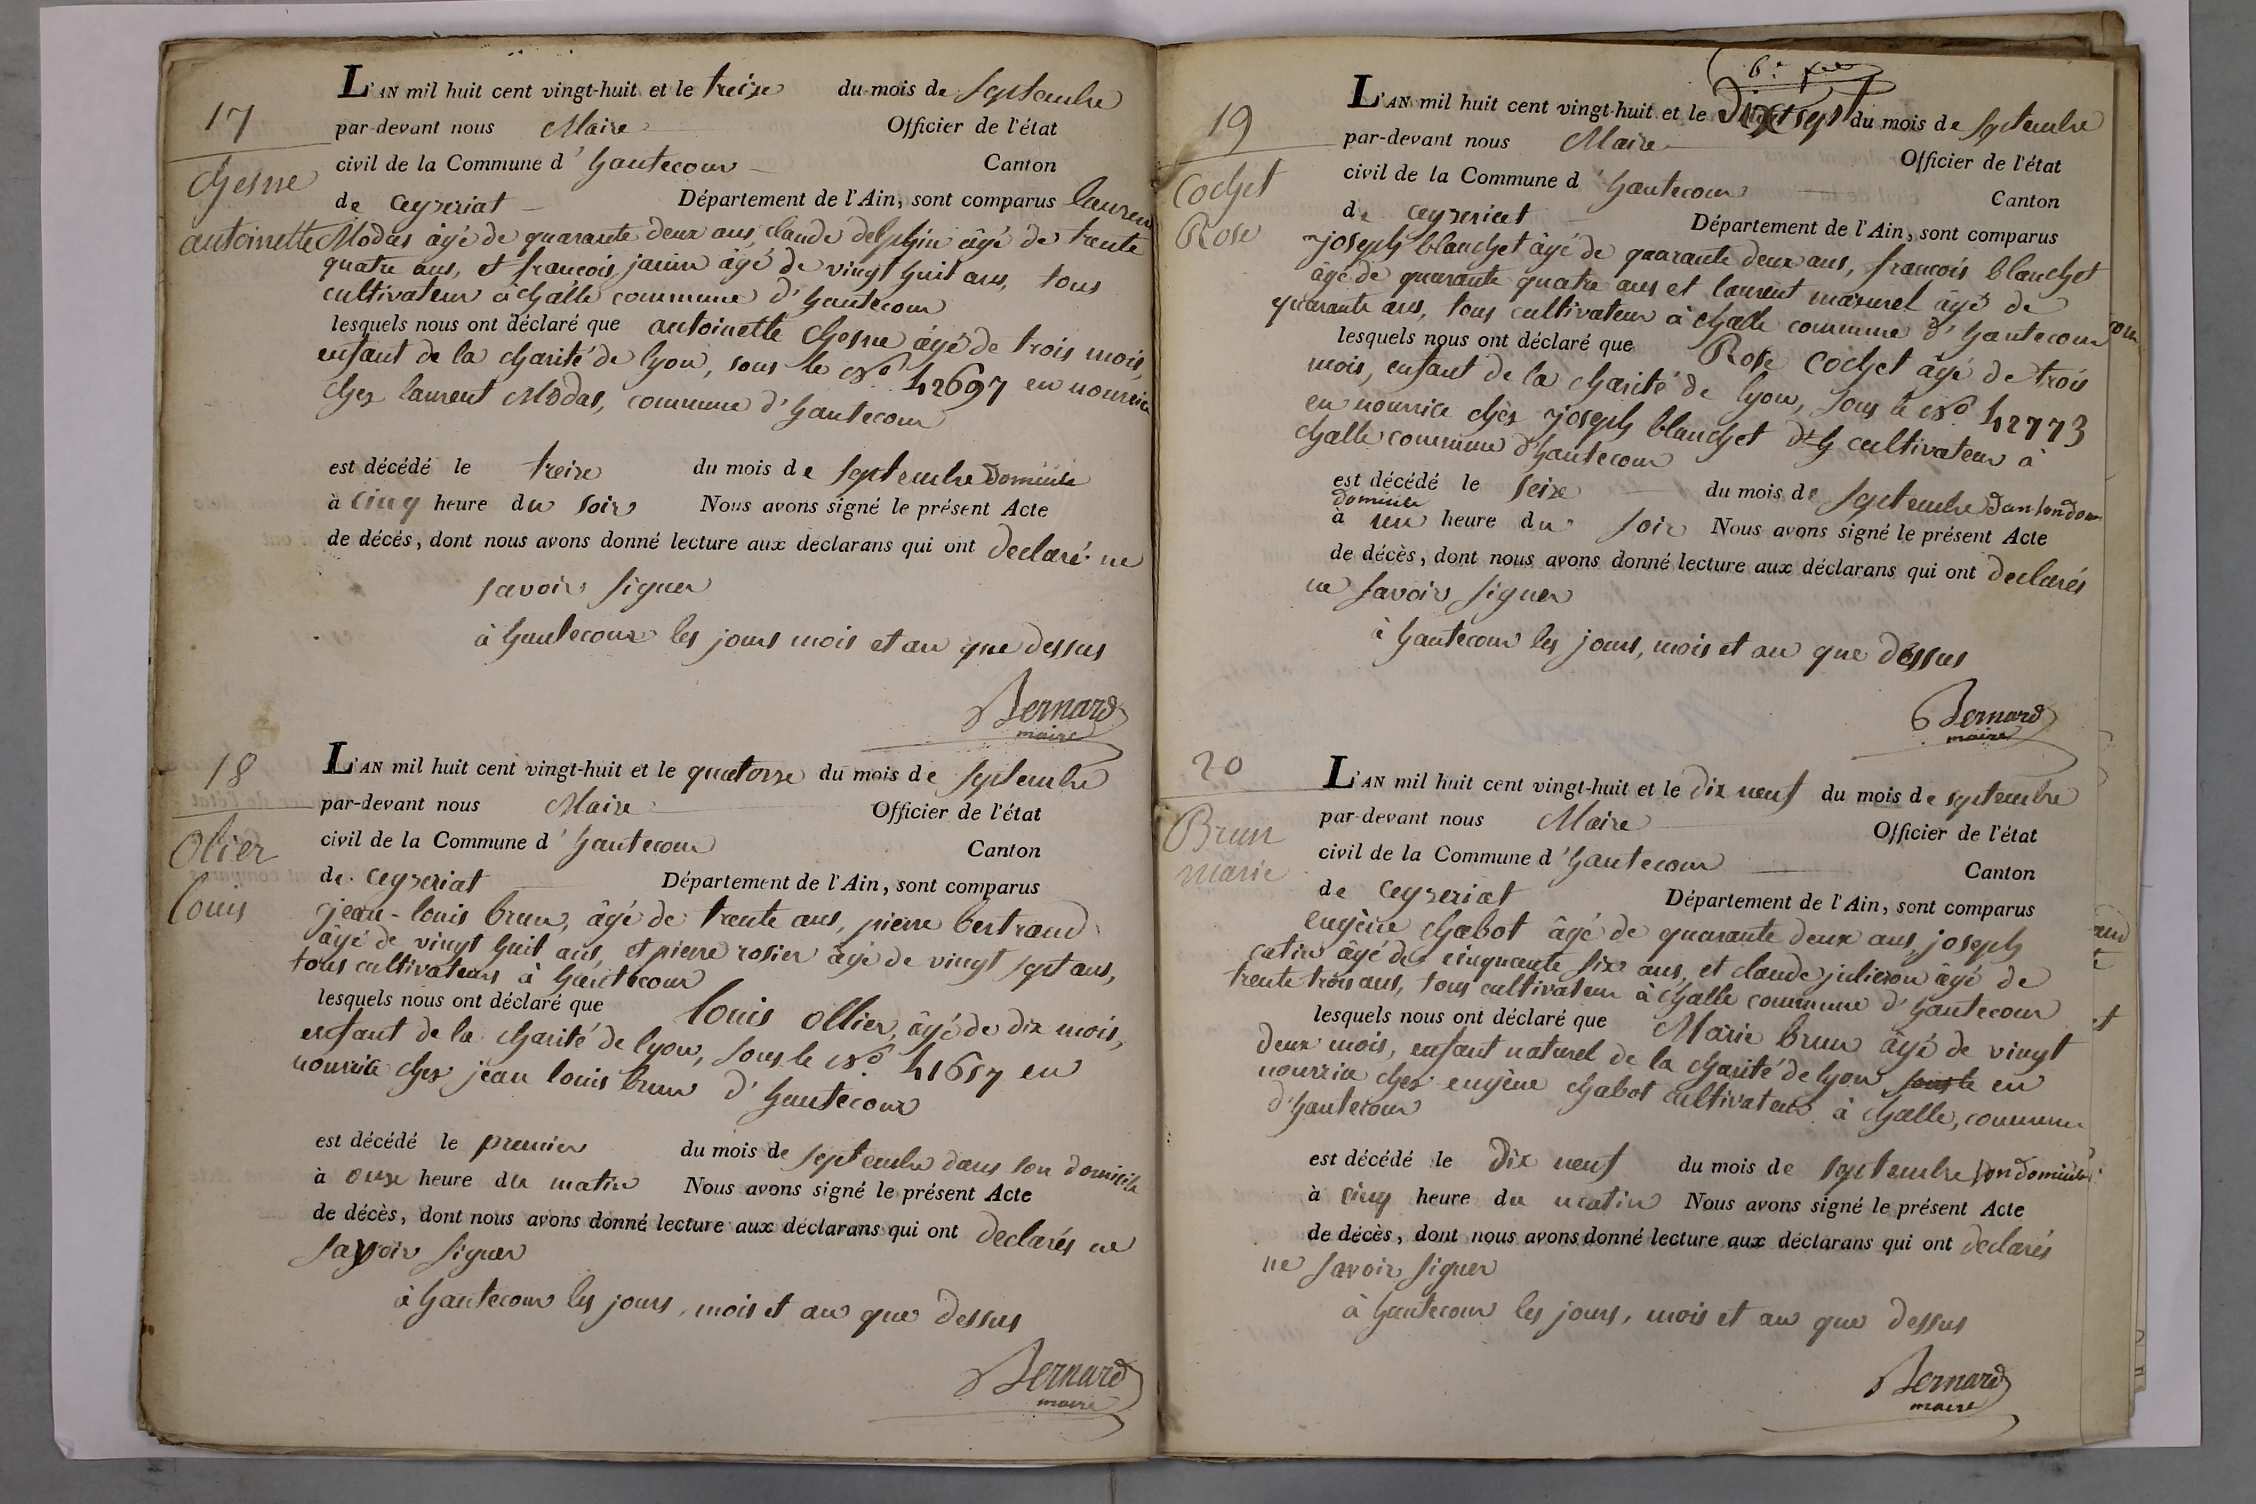 17
chesne
antoinette
L'AN mil huit cent vingt-huit et le treize du mois de septembre
par-devant nous Maire Officier de l'état
civil de la Commune d'hautecour Canton
de ceyzeriat Département de l'Ain, sont comparus laurent
Modas âgé de quarante deux ans, claude delphin âgé de trente
quatre ans, et françois janin âgé de vingt huit ans, tous
cultivateur à challe commune d'hautecour
lesquels nous ont déclaré que antoinette chesne âgé de trois mois,
enfant de la charité de lyon, sous le No. 42697 en nourrice
chez laurent Modas, commune d'hautecour
est décédé le treize du mois de septembre domicile
à cinq heure du soir Nous avons signé le présent Acte
de décès, dont nous avons donné lecture aux déclarans qui ont declaré ne
savoir signer
à hautecour les jours mois et an que dessus
Bernard
maire
18
Olier
louis
L'AN mil huit cent vingt-huit et le quatorze du mois de septembre
par-devant nous Maire Officier de l'état
civil de la Commune d'hautecour Canton
de ceyzeriat Département de l'Ain, sont comparus
jean-louis brun, âgé de trente ans, pierre bertrand
âgé de vingt huit ans, et pierre rosier âgé de vingt sept ans,
tous cultivateurs à hautecour
lesquels nous ont déclaré que louis ollier, âgé de dix mois,
enfant de la charité de lyon, sous le No. 41657 en
nourrice chez jean louis brun d'hautecour
est décédé le premier du mois de septembre dans son domicile
à onze heure du matin Nous avons signé le présent Acte
de décès, dont nous avons donné lecture aux déclarans qui ont declarés ne
savoir signer
à hautecour les jours, mois et an que dessus
Bernard
maire
6e
19
Cochet
Rose
L'AN mil huit cent vingt-huit et le Dix sept du mois de septembre
par-devant nous Maire Officier de l'état
civil de la Commune d'hautecour Canton
de ceyzeriat Département de l'Ain, sont comparus
joseph blanchet âgé de quarante deux ans, francois blanchet
âgé de quarante quatre ans et laurent mazuret âgé de
quarante ans, tous cultivateur à challe commune d'hautecour
lesquels nous ont déclaré que Rose cochet âgé de trois
mois, enfant de la charité de lyon, sous le No. 42773
en nourrice chéz joseph blanchet cultivateur à
challe commune d'hautecour
est décédé le seize du mois de septembre dans son dom
domicile
à un heure du soir Nous avons signé le présent Acte
de décès, dont nous avons donné lecture aux déclarans qui ont declarés
ne savoir signer
à hautecour les jours, mois et an que dessus
Bernard
maire
20
Brun
marie
L'AN mil huit cent vingt-huit et le dix neuf du mois de septembre
par-devant nous Maire Officier de l'état
civil de la Commune d'hautecour Canton
de ceyzeriat Département de l'Ain, sont comparus
eugène chabot âgé de quarante deux ans, joseph
catin âgé de cinquante six ans, et claude julieron âgé de
trente trois ans, tous cultivateur à challe commune d'hautecour
lesquels nous ont déclaré que Marie brun âgé de vingt
deux mois, enfant naturel de la charité de lyon sous le en
nourrice chez eugène chabot cultivateur à challe, commune
d'hautecour
est décédé le dix neuf du mois de septembre son domicile
à cinq heure du matin Nous avons signé le présent Acte
de décès, dont nous avons donné lecture aux déclarans qui ont declarés
ne savoir signer
à hautecour les jours, mois et an que dessus
Bernard
maire